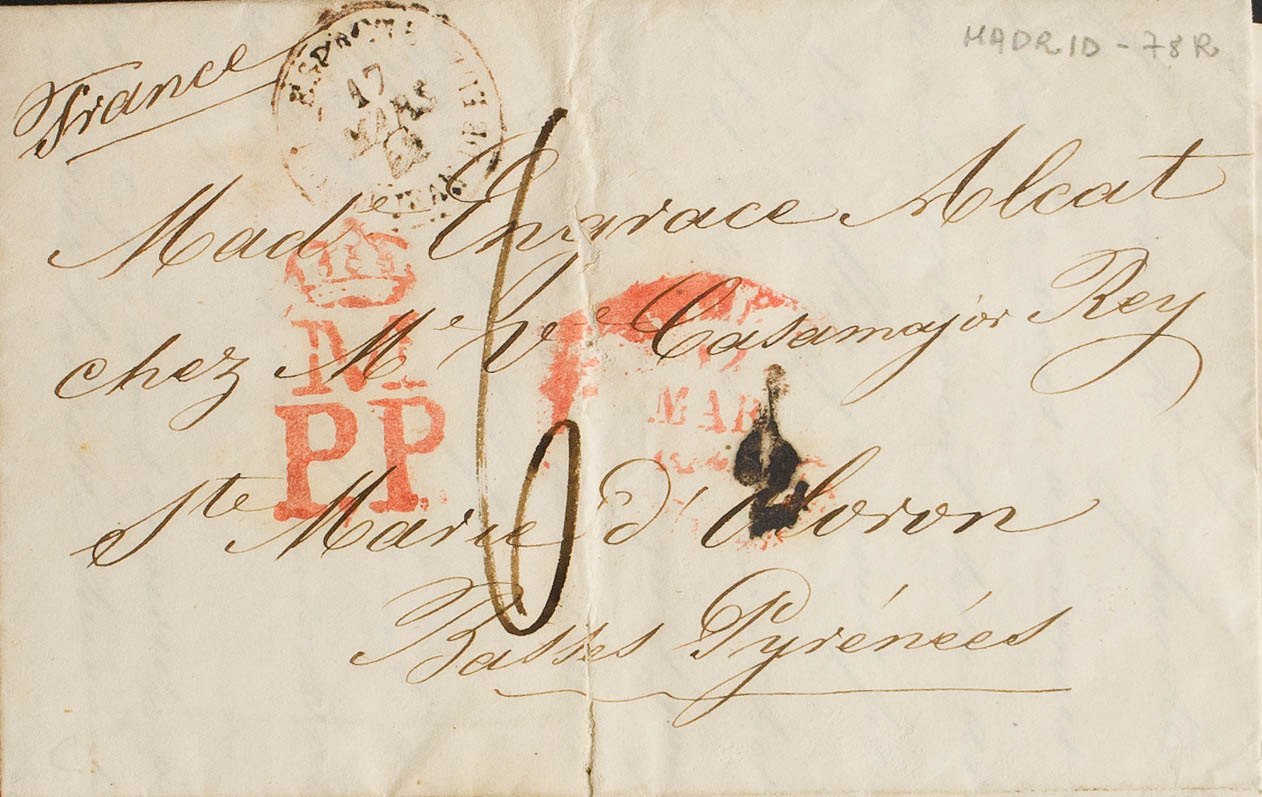 MADRID - 78R
France
17
MARS
Made Engrace Alcat
chez Me Ve Casamajor Rey
M
P.P.
MAR
Ste Marie d'Oloron
6
Basses Pyrénées